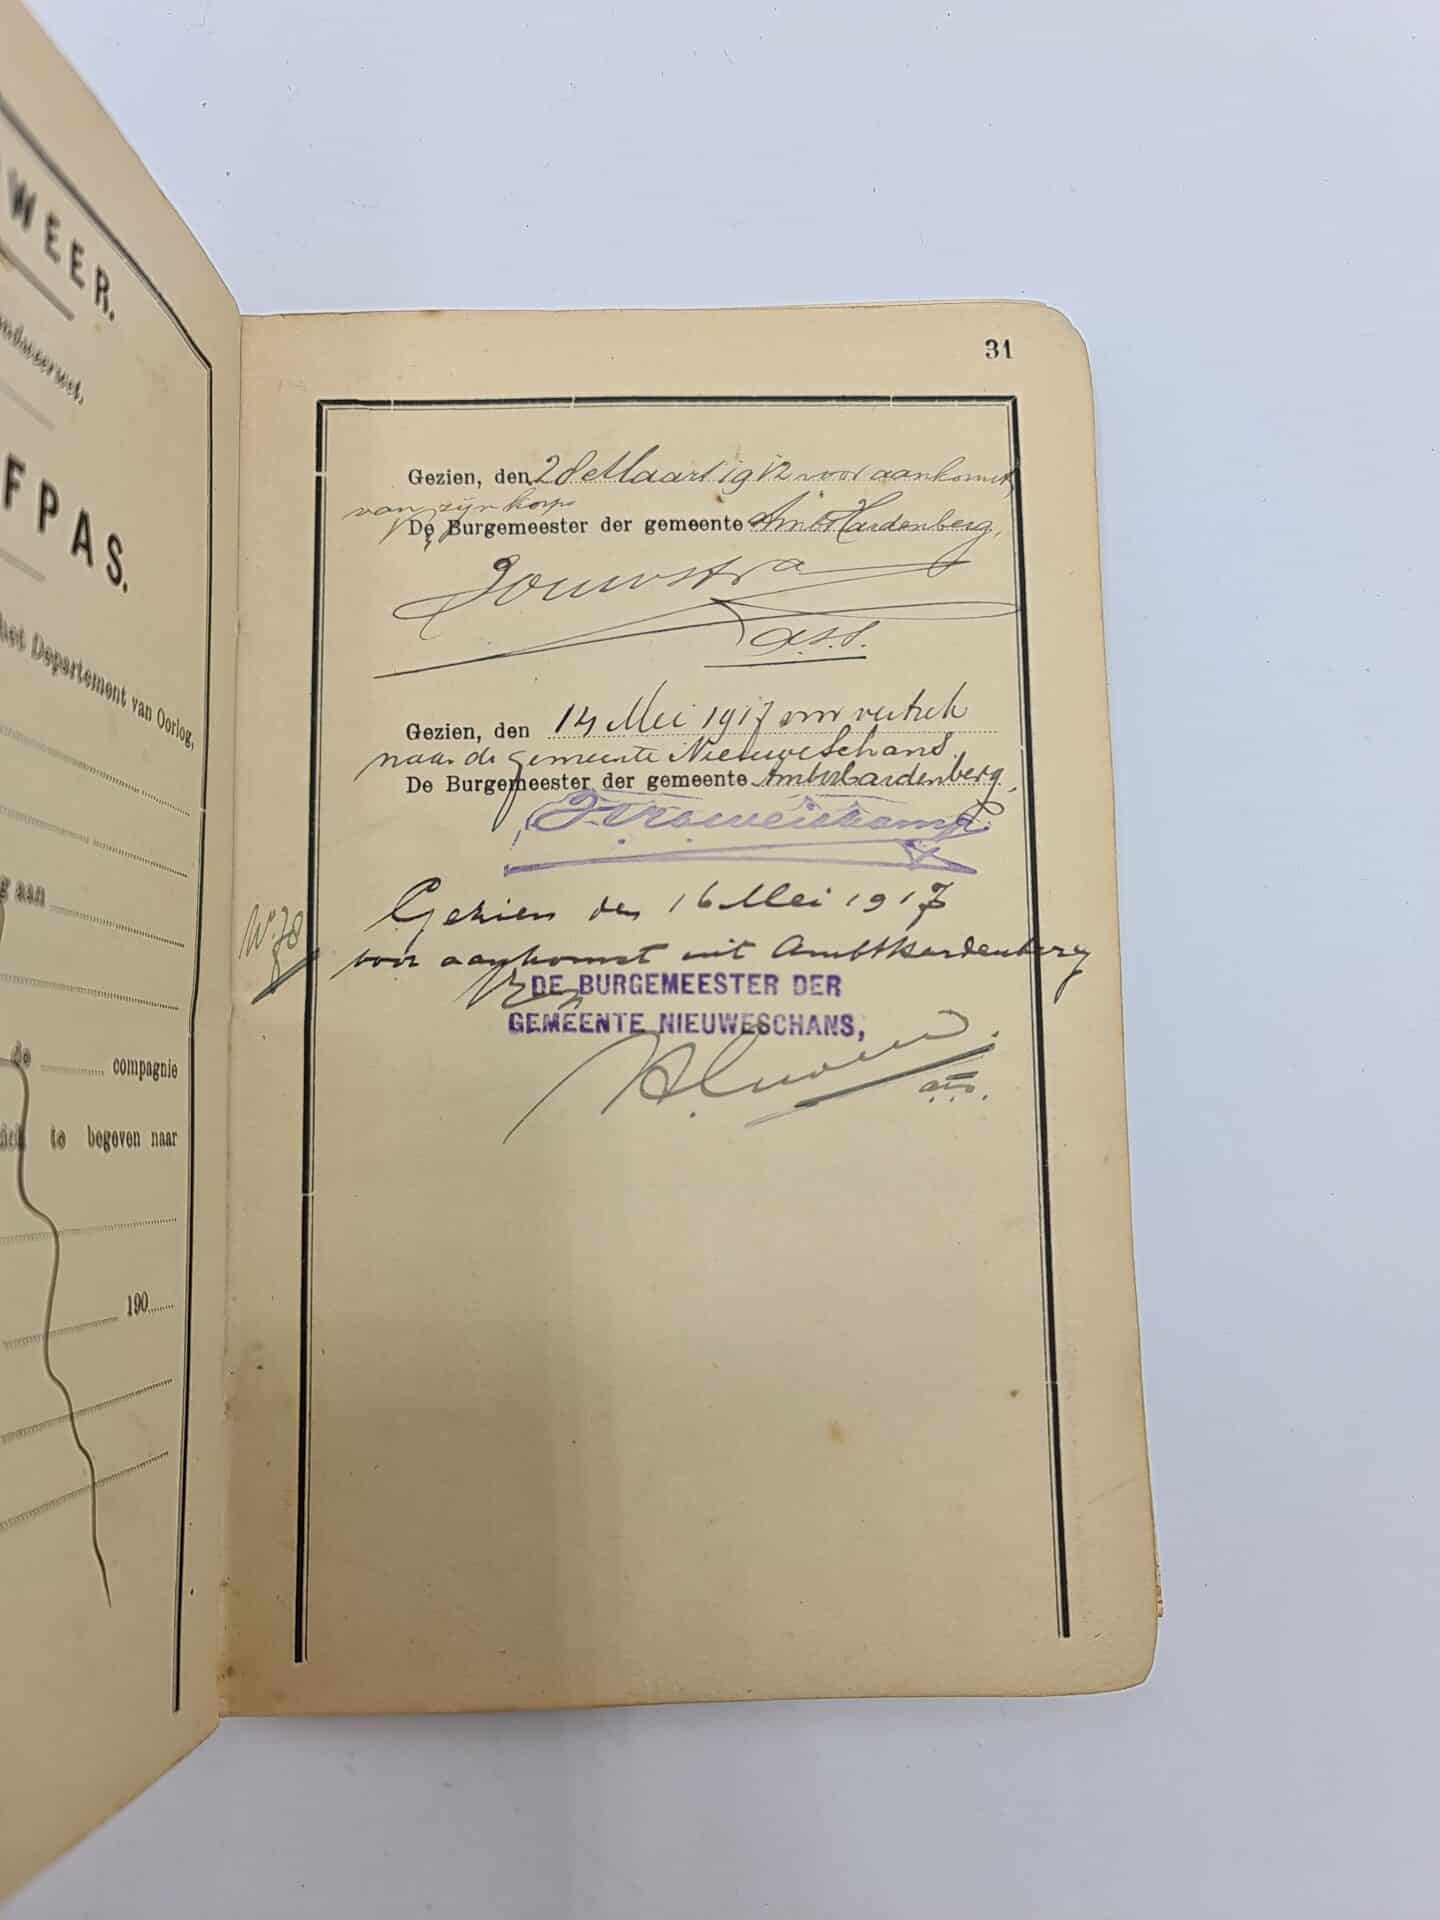 WEER.
FPAS.
het Departement van Oorlog,
g aan
de compagnie
te begeven naar
190
31
Gezien, den 28 Maart 1912 voor aankomst
van zijn korps
De Burgemeester der gemeente Ambt Hardenberg,
ass.
Gezien, den 14 Mei 1917 voor vertrek
naar de gemeente Nieuweschans.
De Burgemeester der gemeente Ambt Hardenberg,
Gezien den 16 Mei 1917
voor aankomst uit Ambthardenberg
DE BURGEMEESTER DER
GEMEENTE NIEUWESCHANS,